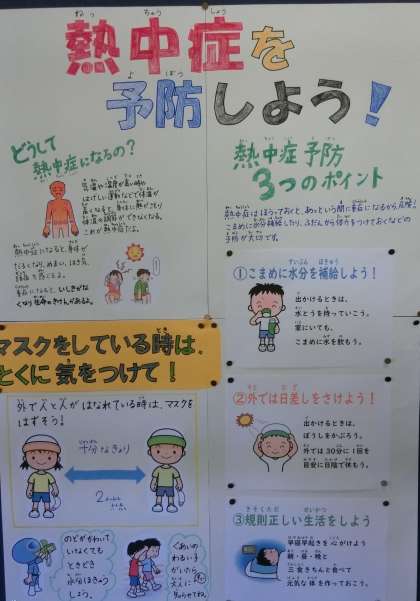 熱中症を
予防しよう!
どうして
熱中症になるの?
気温や湿度が高い時の
はげしい運動などで体温が
高くなると、身体に熱がこもり
体温の調節ができなくなる。
これが熱中症だよ。
熱中症になると、身体が
だるくなり、めまい、はき気、
頭痛を感じるよ。
重症になると、いしきがな
くなり生命のきけんがあるよ。
熱中症 予防
3つのポイント
熱中症はほうっておくと、あっという間に重症になるから危険!
こまめに水分補給したり、ふだんから体力をつけておくなどの
予防が大切です。
①こまめに水分を補給しよう!
出かけるときは、
水とうを持っていこう。
家にいても、
こまめに水を飲もう。
マスクをしている時は、
とくに気をつけて!
外で人と人がはなれている時は、マスクを
はずそう!
十分なきょり
2メートル
のどがかわいて
いなくても
ときどき
水分ほきゅう
しよう。
ぐあいの
わるい子
がいたら
大人に
知らせてね。
②外では日差しをさけよう!
出かけるときは、
ぼうしをかぶろう。
外では30分に1回を
目安に日陰で休もう。
③規則正しい生活をしよう
早寝早起きを心がけよう
朝・昼・晩と
三食きちんと食べて
元気な体を作っておこう。